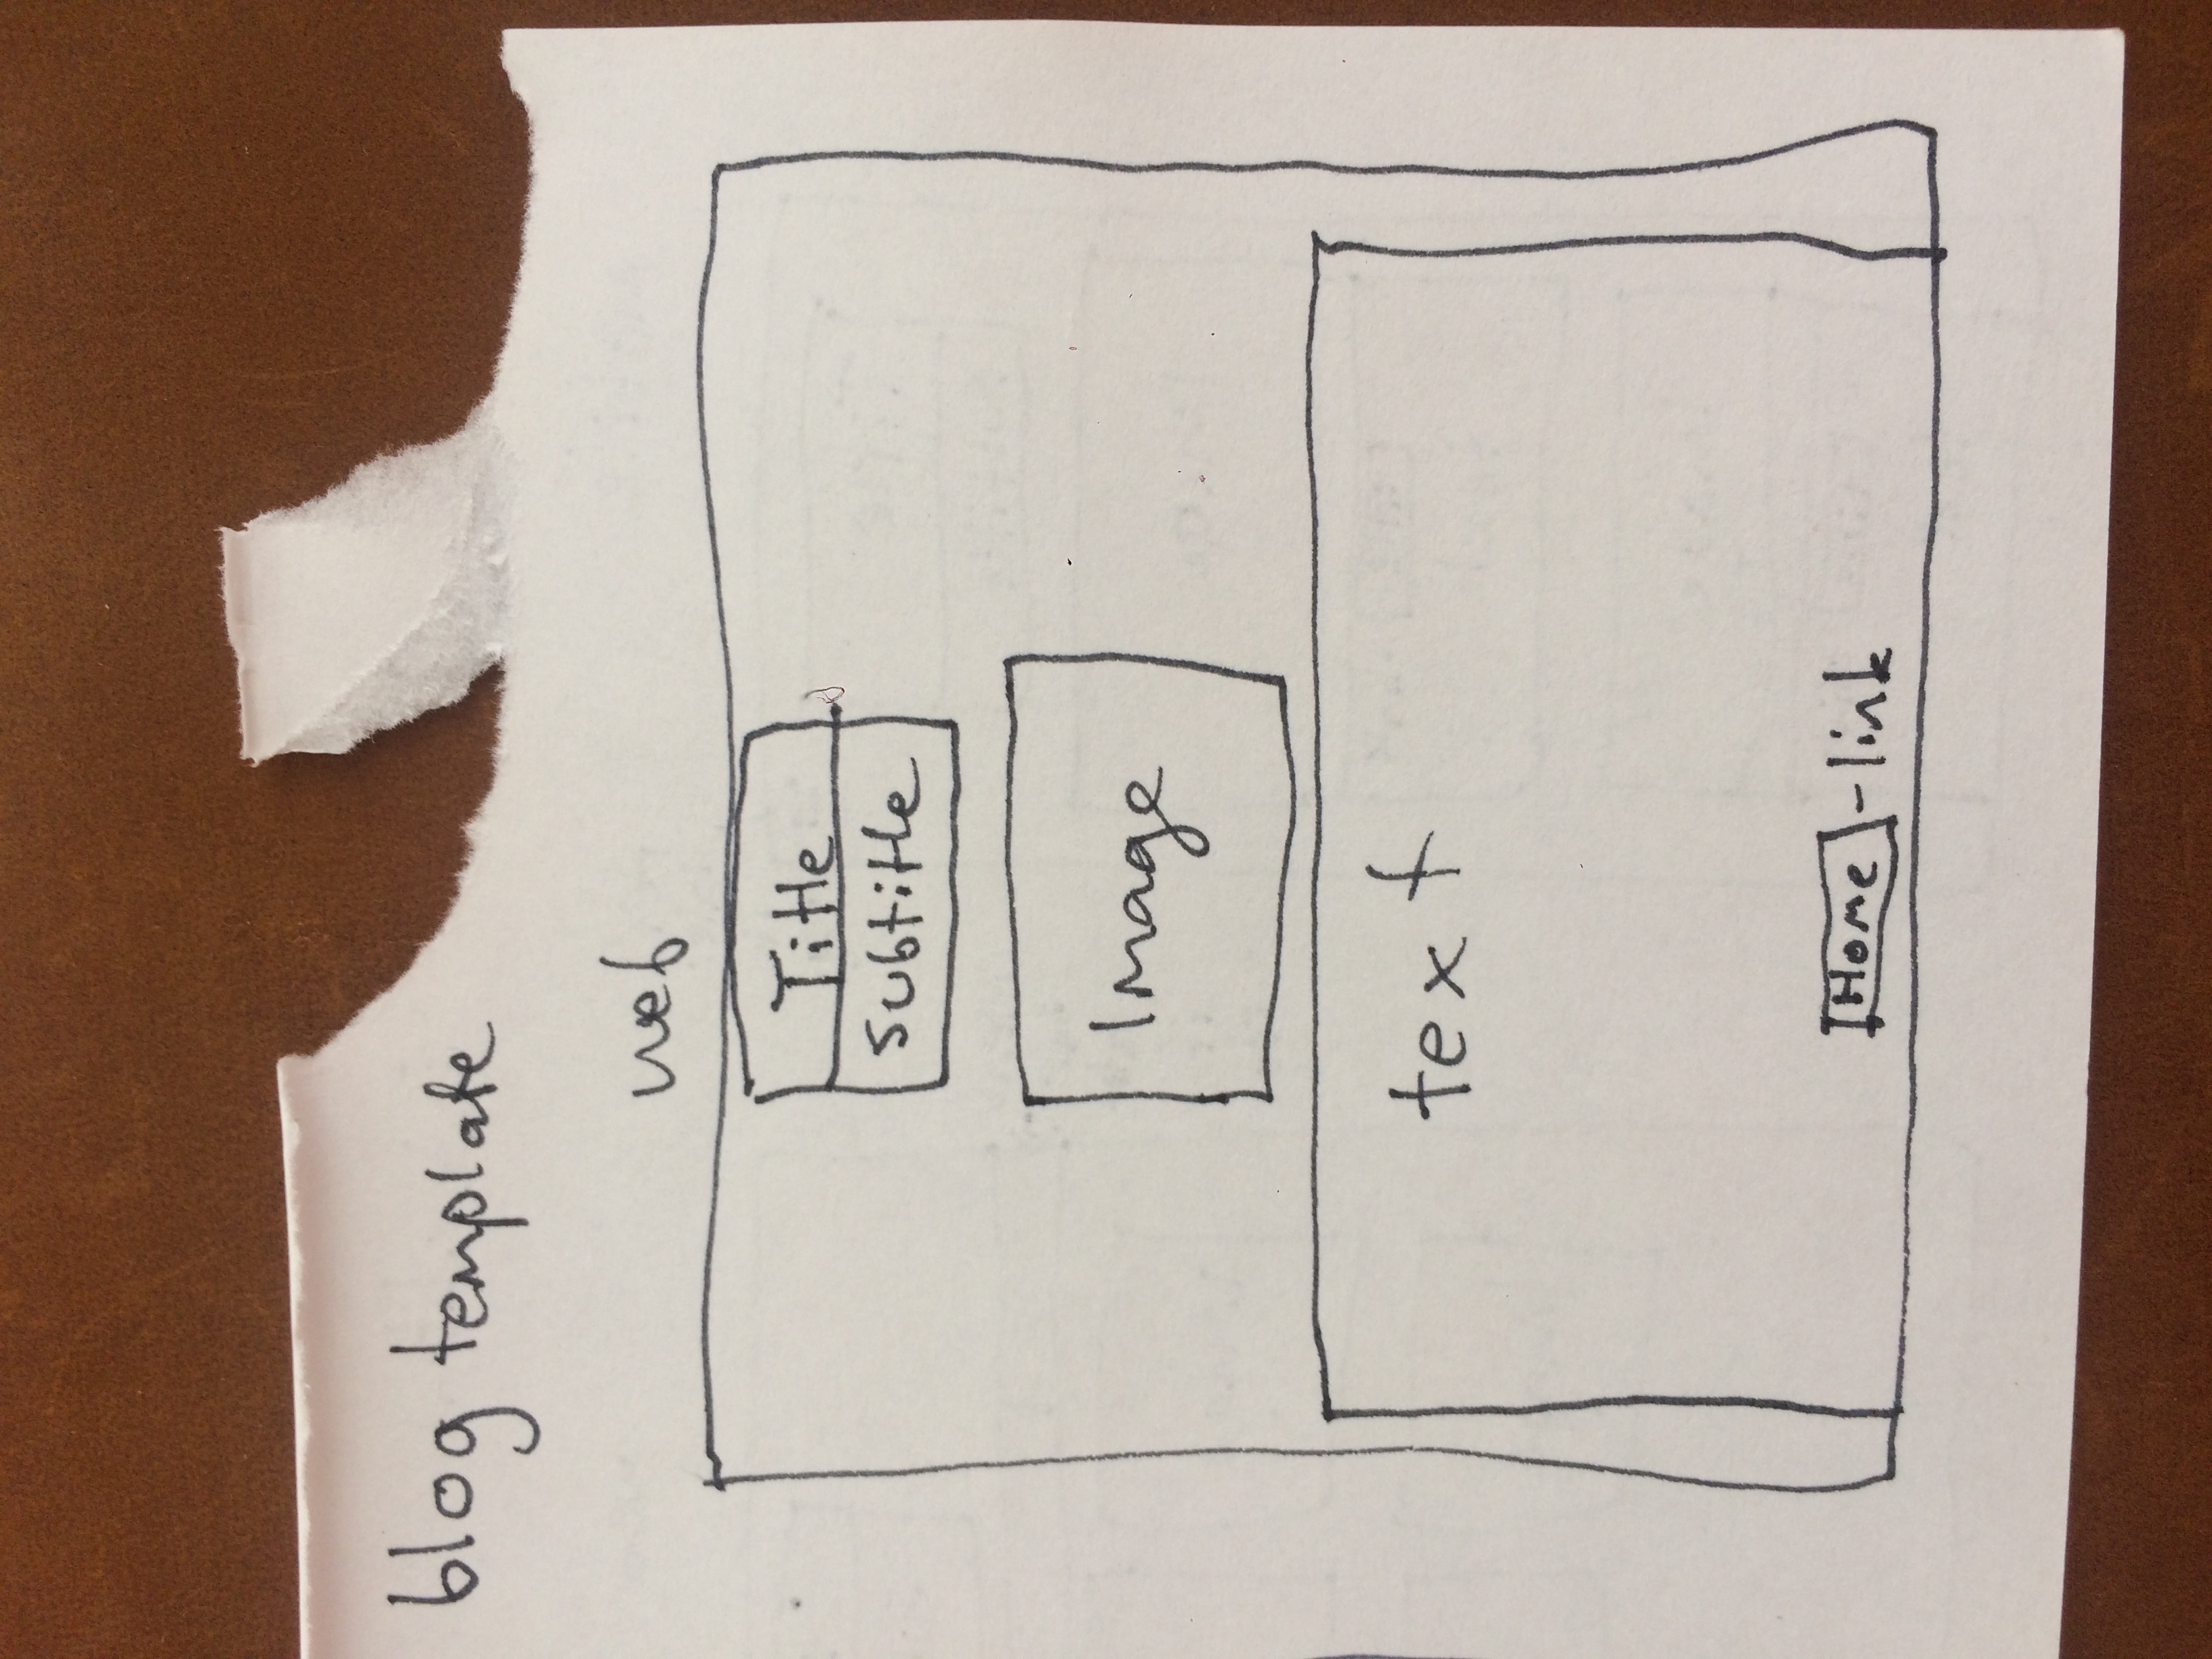 blog template
web
Title
Subtitle
Image
text
Home - link